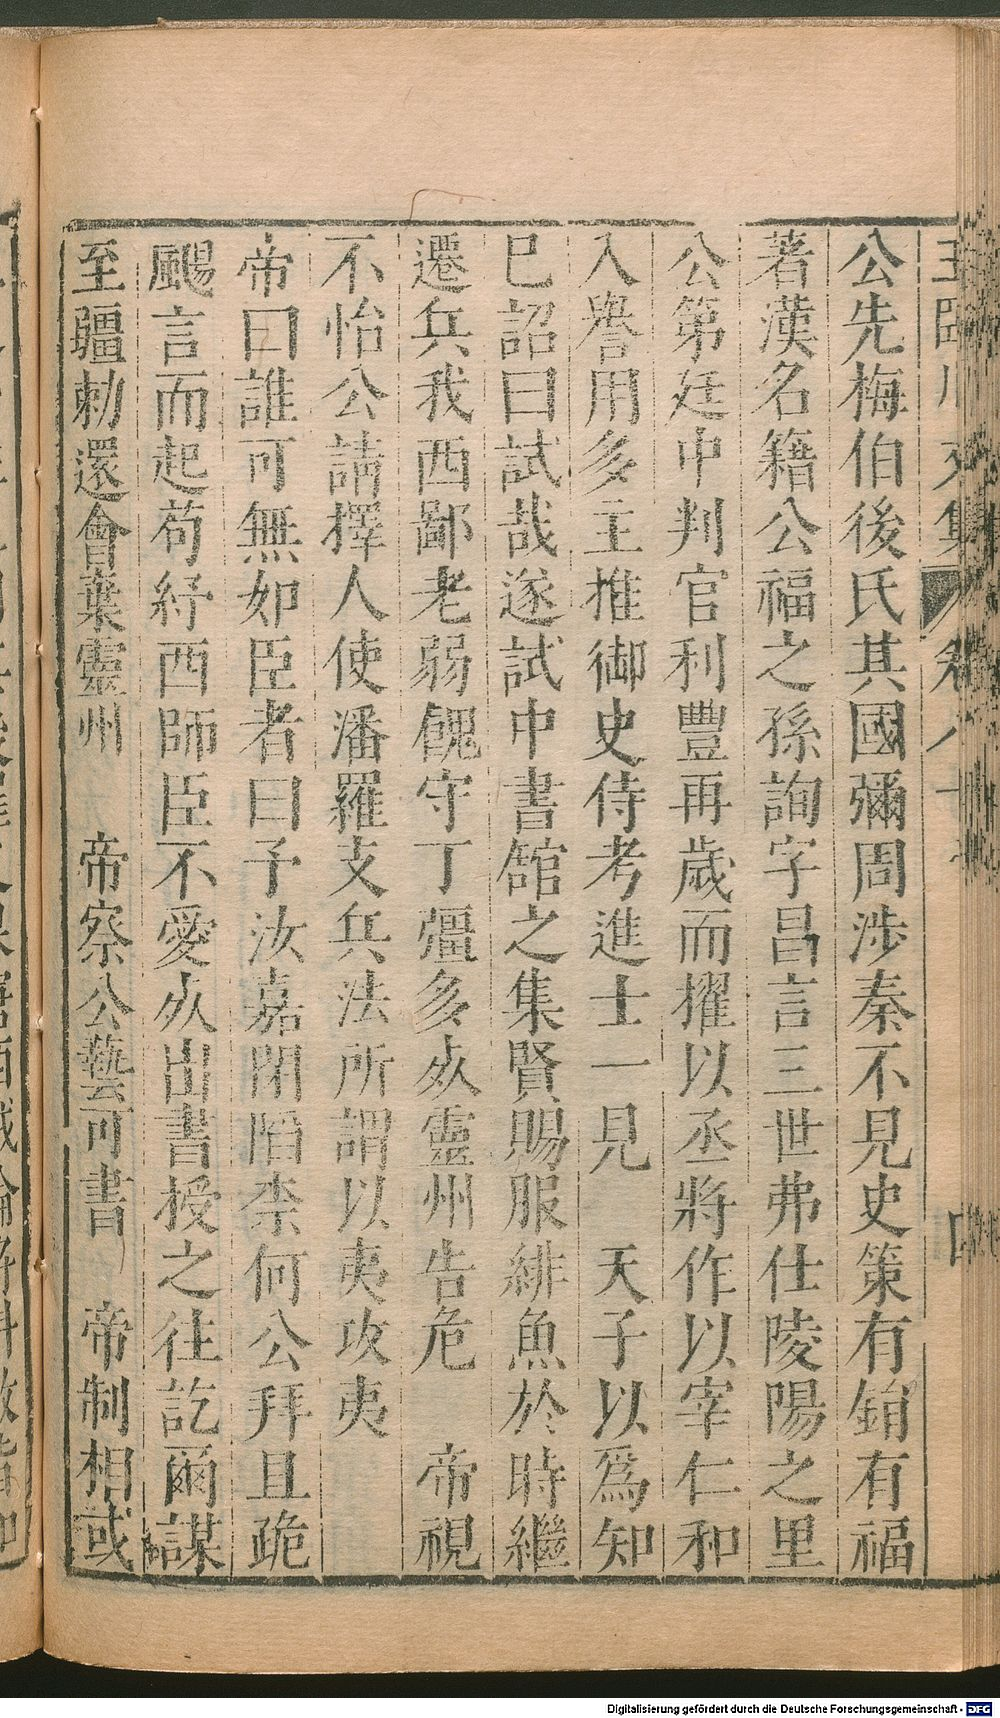 公先梅伯後氏其國彌周涉秦不見史策有鋗有福
著漢名籍公福之孫詢字昌言三世弗仕陵陽之里
公第廷中判官利豐再歲而擢以丞將作以宰仁和
入譽用多主推御史侍考進士一見　天子以爲知
已詔曰試哉遂試中書舘之集賢賜服緋魚於時繼
遷兵我西鄙老弱餽守丁彊多歿靈州告危　帝視
不怡公請擇人使潘羅支兵法所謂以夷攻夷
帝曰誰可無如臣者曰予汝嘉閉陷柰何公拜且跪
颺言而起苟紓西師臣不愛歿出書授之往訖爾謀
至疆勅還會葉靈州　帝察公藝可書　帝制相或
Digitalisierung gefördert durch die Deutsche Forschungsgemeinschaft - DFG